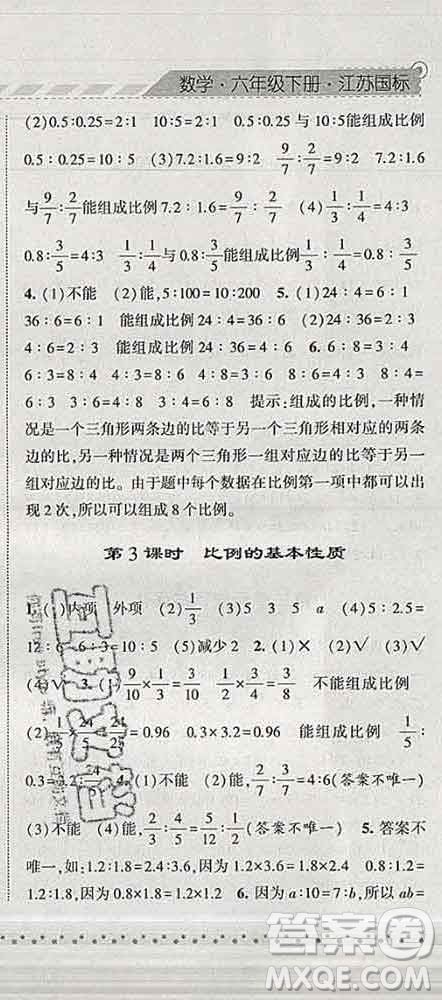 数学·六年级下册·江苏国标
(2)0.5∶0.25=2∶1 10∶5=2∶1 0.5∶0.25与10∶5能组成比例
0.5∶0.25=10∶5 (3)7.2∶1.6=9∶2 9/7∶2/7=9∶2 7.2∶1.6
与9/7∶2/7能组成比例7.2∶1.6=9/7∶2/7 (4)1/3∶1/4=4∶3
0.8∶3/5=4∶3 1/3∶1/4与0.8∶3/5能组成比例1/3∶1/4=0.8∶3/5
4.(1)不能 (2)能,5∶100=10∶200 5.(1)24∶4=6∶1
36∶6=6∶1 能组成比例24∶4=36∶6 (2)24∶36=2∶3
4∶6=2∶3 能组成比例24∶36=4∶6 6. 6∶3=8∶4
6∶3=8∶4 4∶3=8∶6 4∶8=3∶6 8∶6=4∶3 8∶4=
6∶3 3∶6=4∶8 3∶4=6∶8 提示:组成的比例,一种情
况是一个三角形两条边的比等于另一个三角形相对应的两条
边的比,另一种情况是两个三角形一组对应边的比等于另一
组对应边的比。由于题中每个数据在比例第一项中都可以出
现2次,所以可以组成8个比例。
第3课时 比例的基本性质
1.(1)内项 外项 (2)1/3 (3)5 3 5 a (4)5∶2.5=
12∶6 6∶3=10∶5 (5)减少2 2.(1)× (2)√ (3)√
(4)√ 9/10×1/3=3/10 1/2×3/4=3/8 不能组成比例
(2)1/5×24/5=24/25=0.96 0.3×3.2=0.96 能组成比例 1/5∶
(1)不能 (2)能,2/3∶1/2=4∶6(答案不唯一)
(3)不能 (4)能,2/3∶4/5=5/12∶1/2(答案不唯一) 5.答案不
唯一,如:1.2∶1.8=2.4∶3.6,因为1.2×3.6=1.8×2.4 0.8∶1.2=
1.2∶1.8,因为0.8×1.8=1.2×1.2 6.因为a∶10=7∶b,所以ab=
答案圈
MXQE.COM